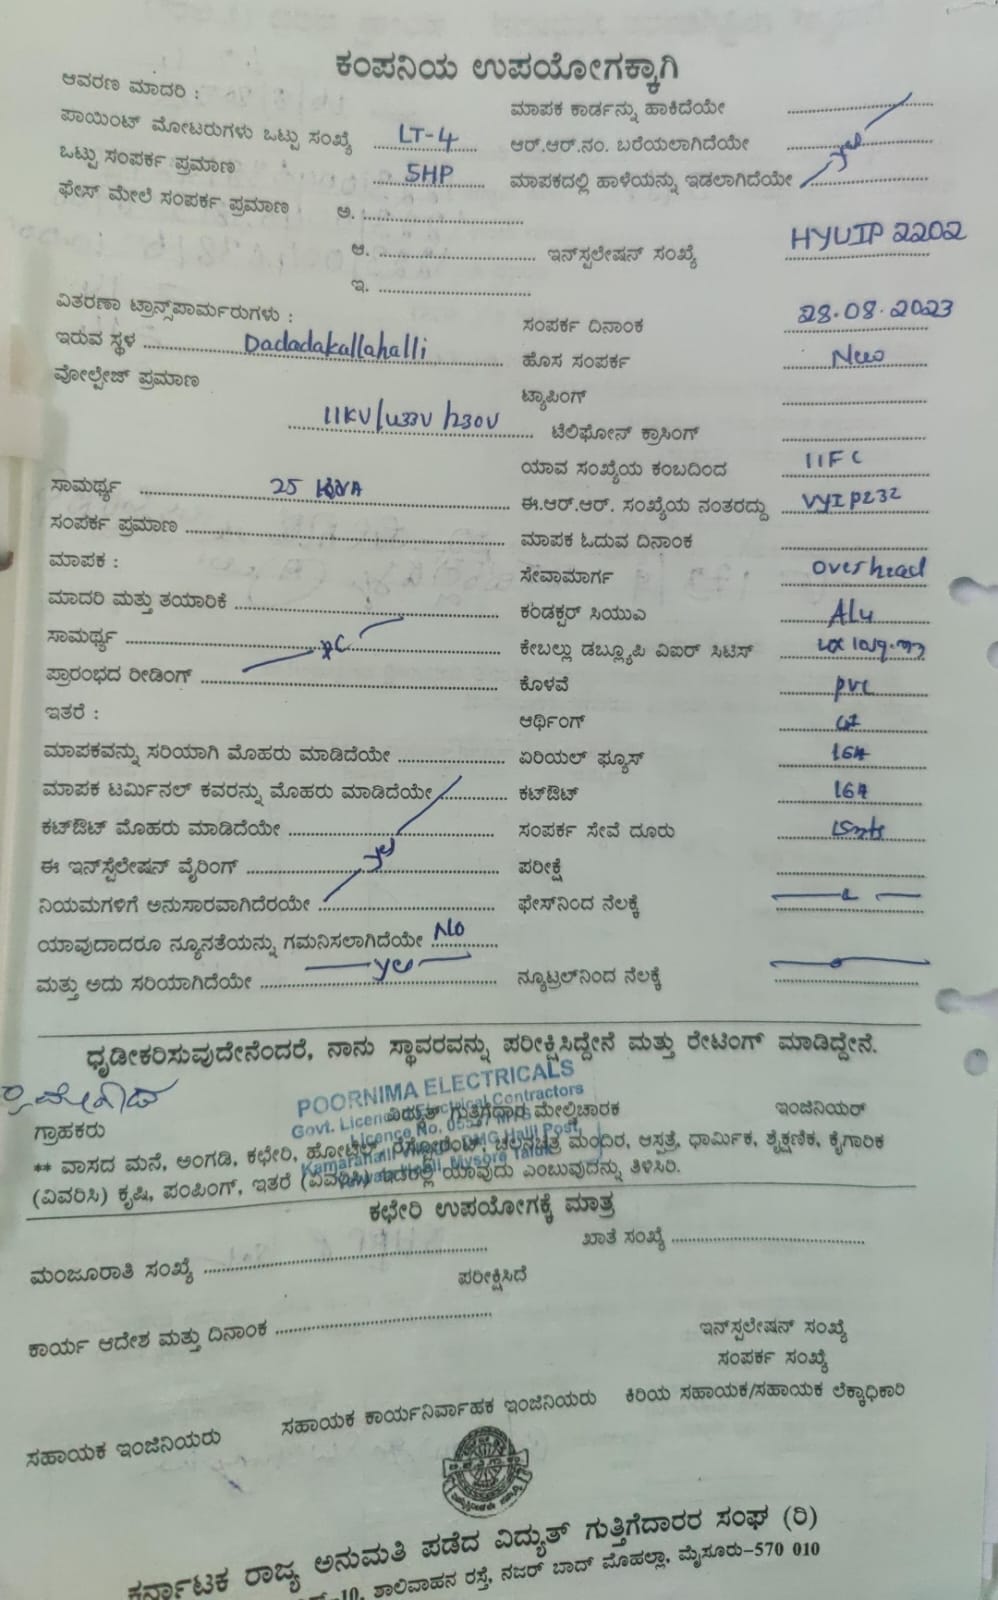 ಕಂಪನಿಯ ಉಪಯೋಗಕ್ಕಾಗಿ
ಆವರಣ ಮಾದರಿ :
ಮಾಪಕ ಕಾರ್ಡನ್ನು ಹಾಕಿದೆಯೇ
ಪಾಯಿಂಟ್ ಮೋಟರುಗಳು ಒಟ್ಟು ಸಂಖ್ಯೆ LT-4
ಆರ್.ಆರ್.ನಂ. ಬರೆಯಲಾಗಿದೆಯೇ yes
ಒಟ್ಟು ಸಂಪರ್ಕ ಪ್ರಮಾಣ 5HP
ಮಾಪಕದಲ್ಲಿ ಹಾಳೆಯನ್ನು ಇಡಲಾಗಿದೆಯೇ
ಫೇಸ್ ಮೇಲೆ ಸಂಪರ್ಕ ಪ್ರಮಾಣ ಅ.
ಆ. ಇನ್‌ಸ್ಪಲೇಷನ್ ಸಂಖ್ಯೆ HYUIP 2202
ಇ.
ವಿತರಣಾ ಟ್ರಾನ್ಸ್‌ಪಾರ್ಮರುಗಳು :
ಸಂಪರ್ಕ ದಿನಾಂಕ 28.08.2023
ಇರುವ ಸ್ಥಳ Dadadakallahalli
ಹೊಸ ಸಂಪರ್ಕ New
ವೋಲ್ಟೇಜ್ ಪ್ರಮಾಣ
ಟ್ಯಾಪಿಂಗ್
11KV/433V/230V ಟೆಲಿಫೋನ್ ಕ್ರಾಸಿಂಗ್
ಯಾವ ಸಂಖ್ಯೆಯ ಕಂಬದಿಂದ 11FC
ಸಾಮರ್ಥ್ಯ 25 KVA
ಈ.ಆರ್.ಆರ್. ಸಂಖ್ಯೆಯ ನಂತರದ್ದು VYIP232
ಸಂಪರ್ಕ ಪ್ರಮಾಣ
ಮಾಪಕ ಓದುವ ದಿನಾಂಕ
ಮಾಪಕ :
ಸೇವಾಮಾರ್ಗ overhead
ಮಾದರಿ ಮತ್ತು ತಯಾರಿಕೆ
ಕಂಡಕ್ಟರ್ ಸಿಯುಎ ALU
ಸಾಮರ್ಥ್ಯ
ಕೇಬಲ್ಲು ಡಬ್ಲ್ಯೂಪಿ ವಿಐರ್ ಸಿಟಿಸ್
ಪ್ರಾರಂಭದ ರೀಡಿಂಗ್
ಕೊಳವೆ pvc
ಇತರೆ :
ಆರ್ಥಿಂಗ್
ಮಾಪಕವನ್ನು ಸರಿಯಾಗಿ ಮೊಹರು ಮಾಡಿದೆಯೇ
ಏರಿಯಲ್ ಫ್ಯೂಸ್ 16A
ಮಾಪಕ ಟರ್ಮಿನಲ್ ಕವರನ್ನು ಮೊಹರು ಮಾಡಿದೆಯೇ
ಕಟ್‌ಔಟ್ 16A
ಕಟ್‌ಔಟ್ ಮೊಹರು ಮಾಡಿದೆಯೇ
ಸಂಪರ್ಕ ಸೇವೆ ದೂರು 15mts
ಈ ಇನ್‌ಸ್ಪೆಲೇಷನ್ ವೈರಿಂಗ್ yes
ಪರೀಕ್ಷೆ
ನಿಯಮಗಳಿಗೆ ಅನುಸಾರವಾಗಿದೆರಯೇ
ಫೇಸ್‌ನಿಂದ ನೆಲಕ್ಕೆ
ಯಾವುದಾದರೂ ನ್ಯೂನತೆಯನ್ನು ಗಮನಿಸಲಾಗಿದೆಯೇ No
ಮತ್ತು ಅದು ಸರಿಯಾಗಿದೆಯೇ yes
ನ್ಯೂಟ್ರಲ್‌ನಿಂದ ನೆಲಕ್ಕೆ
ಧೃಡೀಕರಿಸುವುದೇನೆಂದರೆ, ನಾನು ಸ್ಥಾವರವನ್ನು ಪರೀಕ್ಷಿಸಿದ್ದೇನೆ ಮತ್ತು ರೇಟಿಂಗ್ ಮಾಡಿದ್ದೇನೆ.
POORNIMA ELECTRICALS
Govt. Licenced Electrical Contractors
ಗ್ರಾಹಕರು ವಿದ್ಯುತ್ ಗುತ್ತಿಗೆದಾರ ಮೇಲ್ವಿಚಾರಕ ಇಂಜಿನಿಯರ್
Licence No.
** ವಾಸದ ಮನೆ, ಅಂಗಡಿ, ಕಛೇರಿ, ಹೋಟೆಲ್, ರೆಸ್ಟೋರೆಂಟ್, ಚಲನಚಿತ್ರ ಮಂದಿರ, ಆಸ್ಪತ್ರೆ, ಧಾರ್ಮಿಕ, ಶೈಕ್ಷಣಿಕ, ಕೈಗಾರಿಕ
(ವಿವರಿಸಿ) ಕೃಷಿ, ಪಂಪಿಂಗ್, ಇತರೆ (ವಿವರಿಸಿ) ಇದರಲ್ಲಿ ಯಾವುದು ಎಂಬುವುದನ್ನು ತಿಳಿಸಿರಿ.
ಕಛೇರಿ ಉಪಯೋಗಕ್ಕೆ ಮಾತ್ರ
ಮಂಜೂರಾತಿ ಸಂಖ್ಯೆ
ಖಾತೆ ಸಂಖ್ಯೆ
ಪರೀಕ್ಷಿಸಿದೆ
ಕಾರ್ಯ ಆದೇಶ ಮತ್ತು ದಿನಾಂಕ
ಇನ್‌ಸ್ಪಲೇಷನ್ ಸಂಖ್ಯೆ
ಸಂಪರ್ಕ ಸಂಖ್ಯೆ
ಸಹಾಯಕ ಇಂಜಿನಿಯರು ಸಹಾಯಕ ಕಾರ್ಯನಿರ್ವಾಹಕ ಇಂಜಿನಿಯರು ಕಿರಿಯ ಸಹಾಯಕ/ಸಹಾಯಕ ಲೆಕ್ಕಾಧಿಕಾರಿ
ಕರ್ನಾಟಕ ರಾಜ್ಯ ಅನುಮತಿ ಪಡೆದ ವಿದ್ಯುತ್ ಗುತ್ತಿಗೆದಾರರ ಸಂಘ (ರಿ)
10, ಶಾಲಿವಾಹನ ರಸ್ತೆ, ನಜರ್ ಬಾದ್ ಮೊಹಲ್ಲಾ, ಮೈಸೂರು-570 010